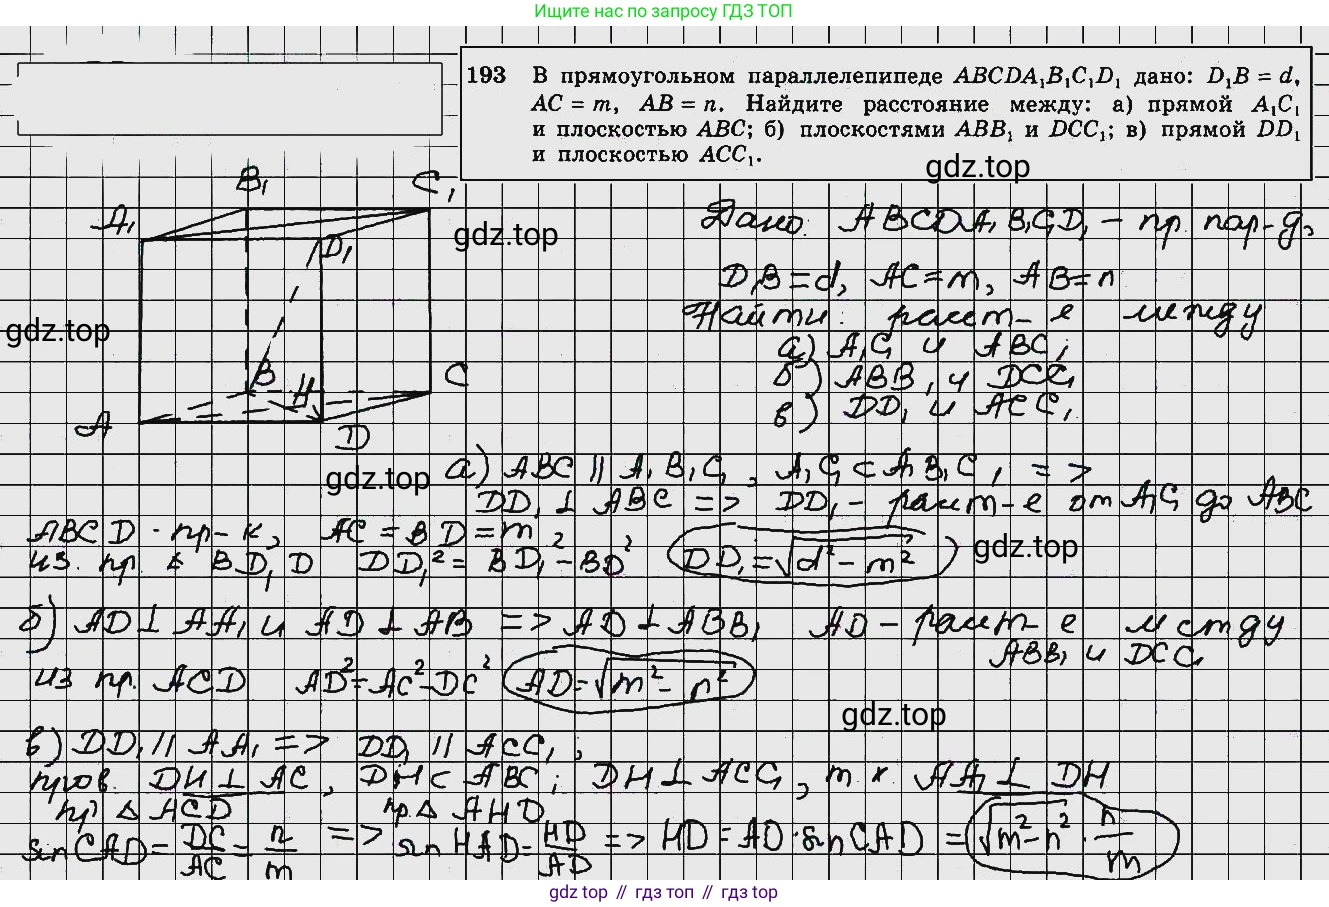 Ищите нас по запросу ГДЗ ТОП
193 В прямоугольном параллелепипеде ABCDA₁B₁C₁D₁ дано: D₁B = d,
AC = m, AB = n. Найдите расстояние между: а) прямой A₁C₁
и плоскостью ABC; б) плоскостями ABB₁ и DCC₁; в) прямой DD₁
и плоскостью ACC₁.
gdz.top
B₁
C₁
A₁
D₁
gdz.top
gdz.top
B
H
C
A
D
gdz.top
Дано: ABCDA₁B₁C₁D₁ - пр. пар-д,
D₁B = d, AC = m, AB = n
Найти: расст-е между
а) A₁C₁ и ABC;
б) ABB₁ и DCC₁
в) DD₁ и ACC₁.
а) ABC || A₁B₁C₁, A₁C₁ ⊂ A₁B₁C₁ =>
DD₁ ⊥ ABC => DD₁ - расст-е от A₁C₁ до ABC
ABCD - пр-к, AC = BD = m
из пр. Δ BD₁D DD₁² = BD₁² - BD² DD₁ = √d² - m²
gdz.top
б) AD ⊥ AA₁ и AD ⊥ AB => AD ⊥ ABB₁ AD - расст-е между
ABB₁ и DCC₁
из пр. ACD AD² = AC² - DC² AD = √m² - n²
gdz.top
в) DD₁ || AA₁ => DD₁ || ACC₁;
пров. DH ⊥ AC, DH ⊂ ABC; DH ⊥ ACC₁, т.к. AA₁ ⊥ DH
пр Δ ACD пр. Δ AHD
sin CAD = DC/AC = n/m => sin HAD = HD/AD => HD = AD · sin CAD = √m² - n² · n/m
gdz top // гдз топ // гдз top